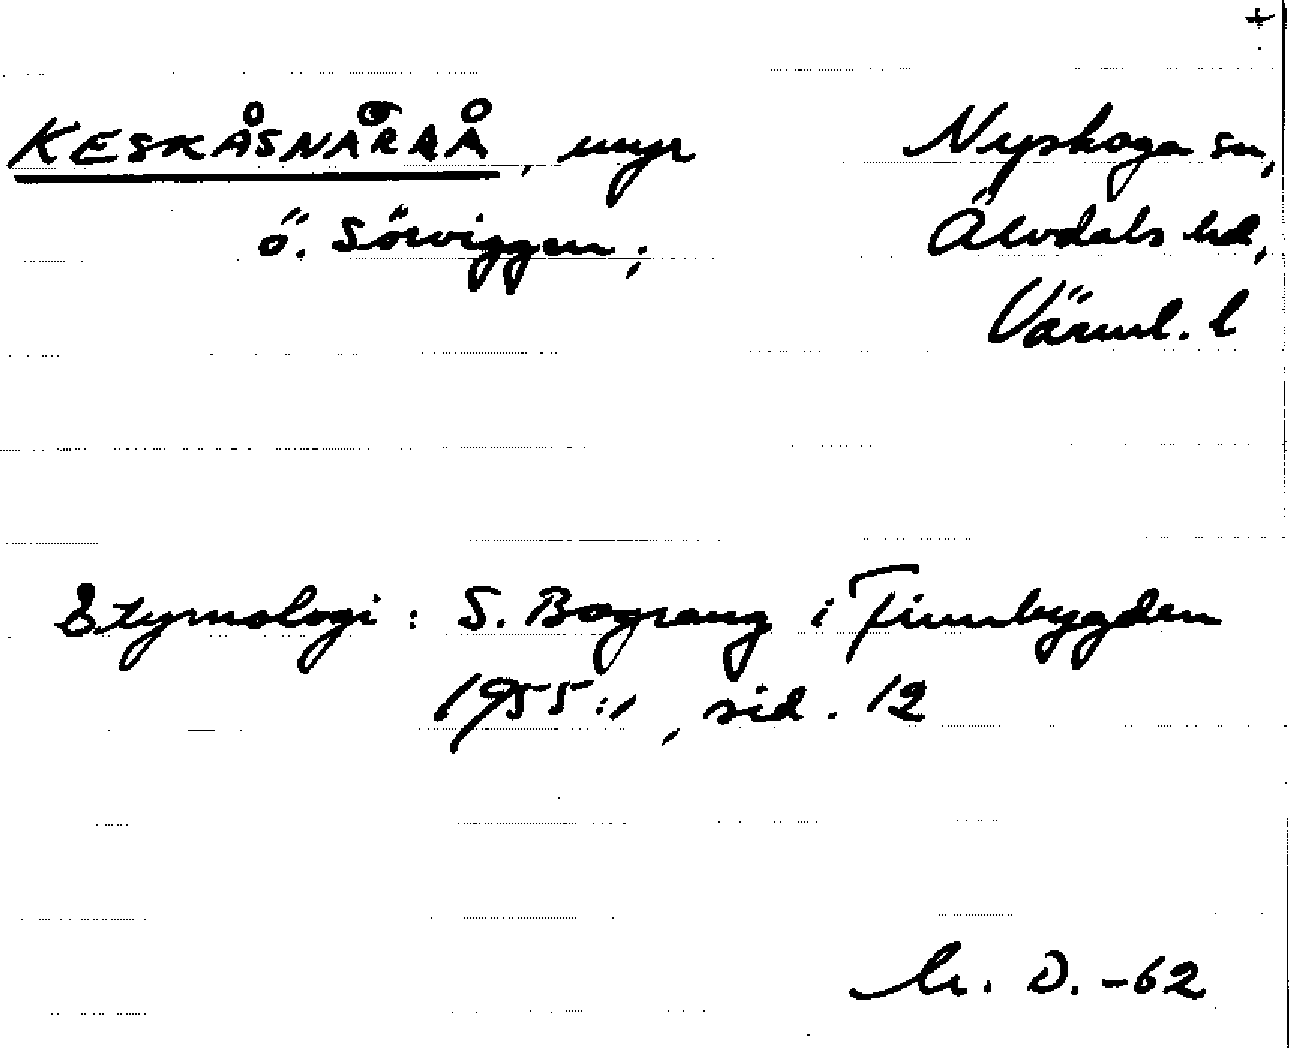 +
KESKÅSNÅRAÅ, myr Nyskoga sn,
ö. Sörviggen; Älvdals hd,
Värml. l
Etymologi: S. Bograng i Finnbygden
1955:1, sid. 12
D. -62